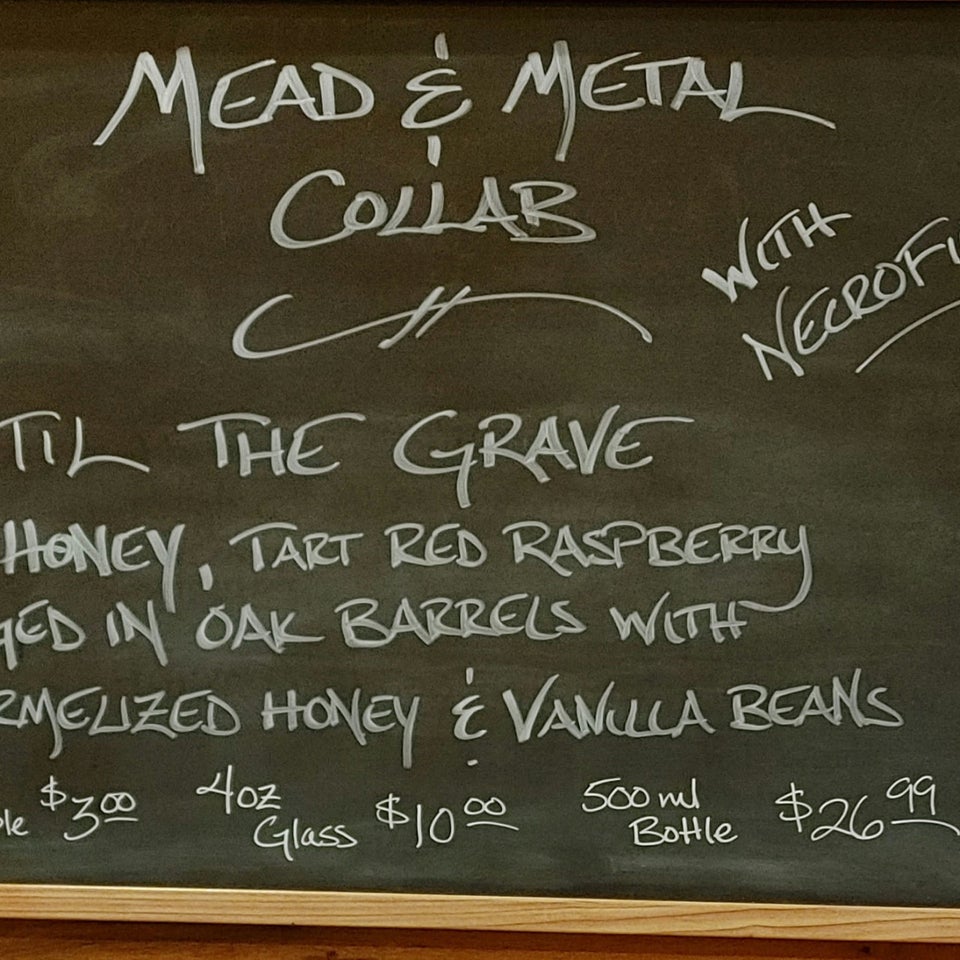 MEAD & METAL
COLLAB
WITH
NECROFI
TIL THE GRAVE
HONEY, TART RED RASPBERRY
GED IN OAK BARRELS WITH
RMELIZED HONEY & VANILLA BEANS
ple $3.00 4oz Glass $10.00 500 ml Bottle $26.99